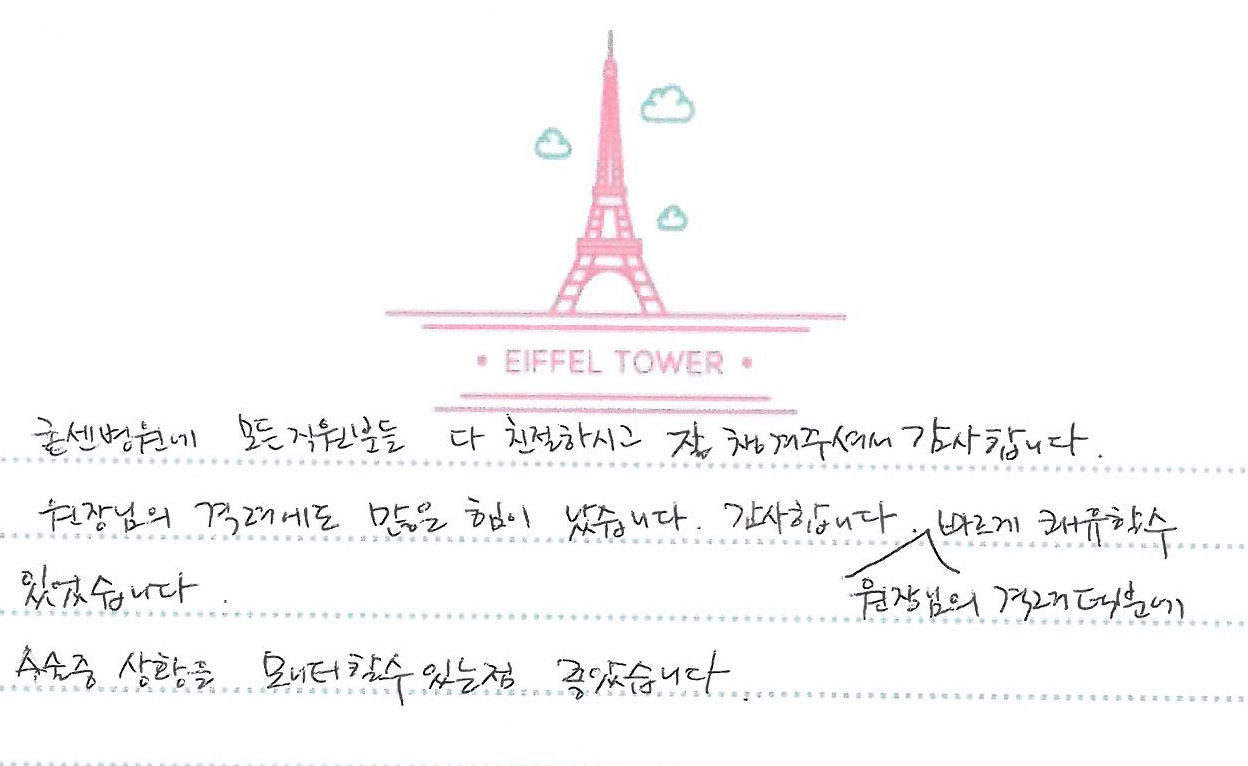 • EIFFEL TOWER •
굳센병원에 모든직원분들 다 친절하시고 잘 챙겨주셔서 감사합니다.
원장님의 격려에도 많은 힘이 났습니다. 감사합니다. 빠르게 쾌유할수
원장님의 격려덕분에
있었습니다.
수술중 상황을 모니터할수 있는점 좋았습니다.